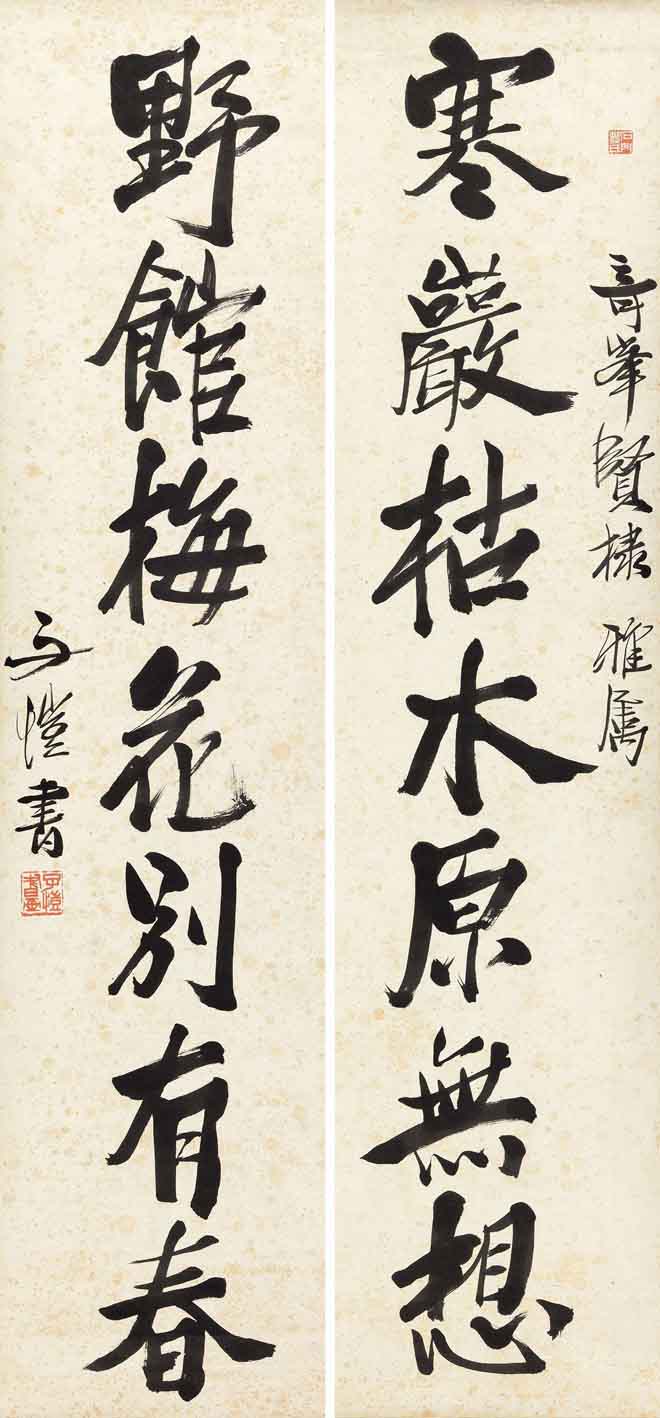 奇峯賢棣 雅属
寒巖枯木原無想
野館梅花別有春
子愷書